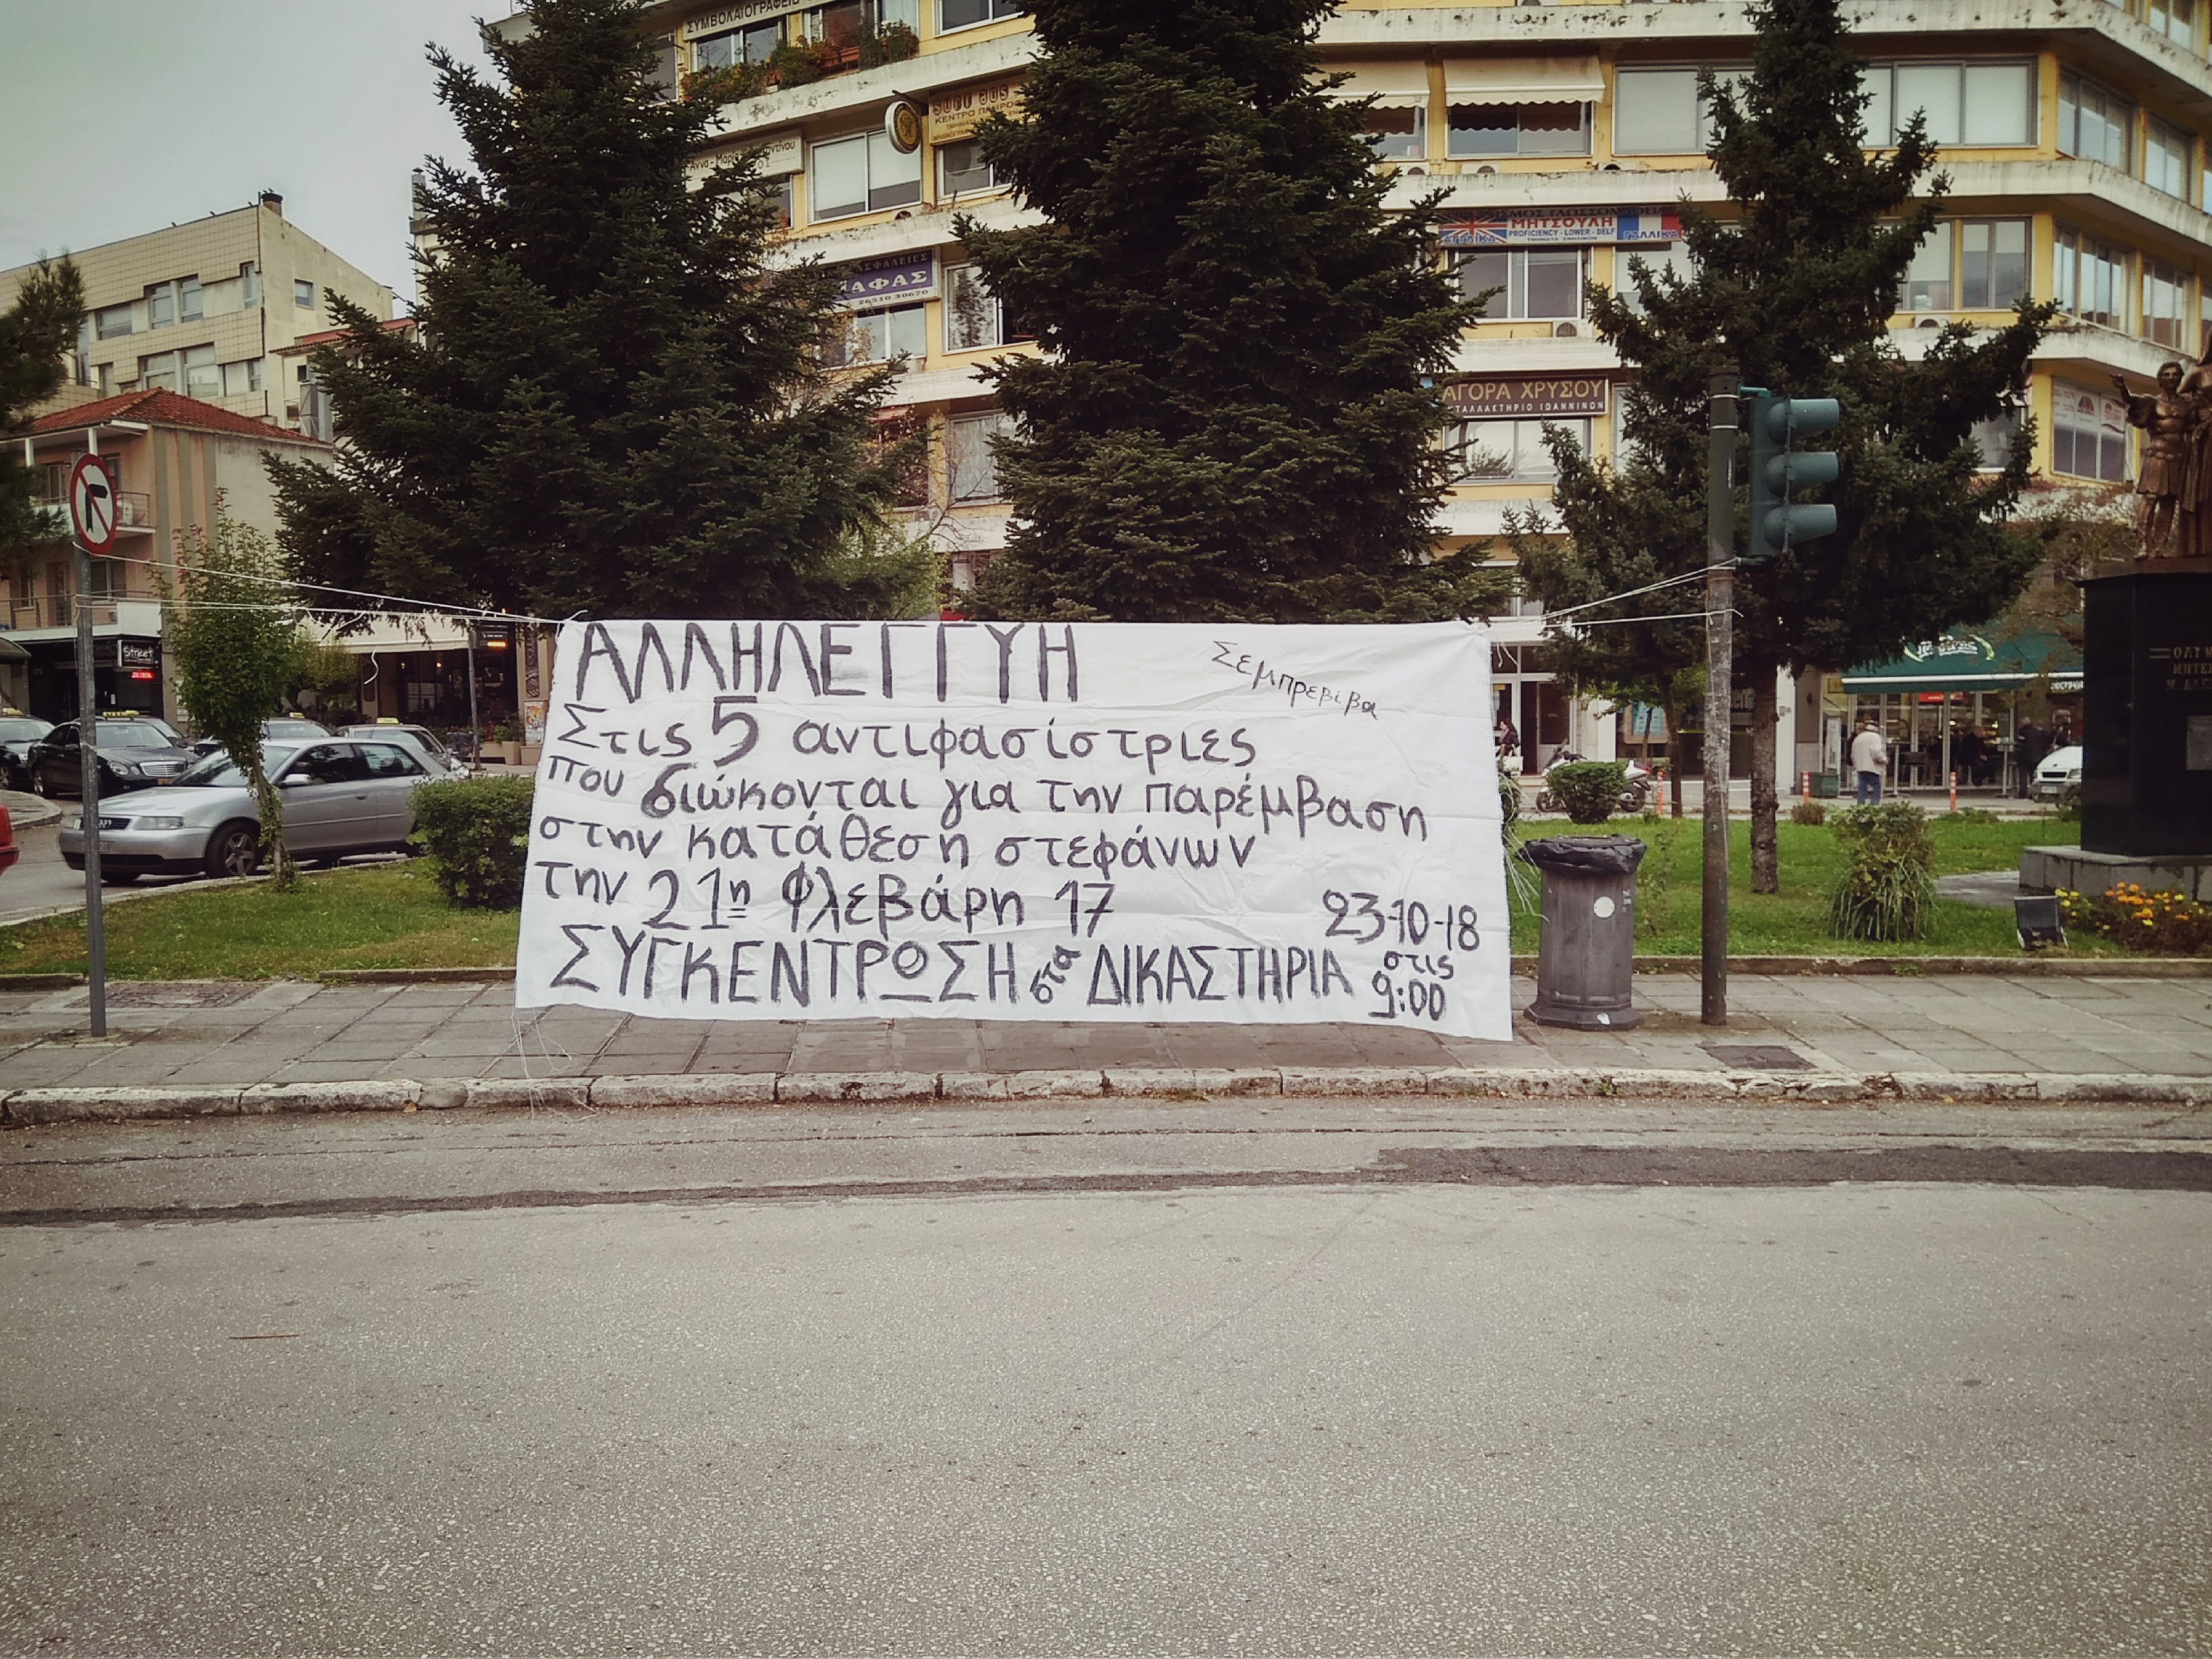 ΣΥΜΒΟΛΑΙΟΓΡΑΦΕΙΟ
ΑΦΑΣ
26510 30670
ΜΗΤΣΟΥΛΗ
ΑΓΓΛΙΚΑ
PROFICIENCY - LOWER - DELF
ΓΑΛΛΙΚΑ
ΑΓΟΡΑ ΧΡΥΣΟΥ
ΙΩΑΝΝΙΝΩΝ
Street
ΑΛΛΗΛΕΓΓΥΗ
Σεμπρεβίβα
Στις 5 αντιφασίστριες
που διώκονται για την παρέμβαση
στην κατάθεση στεφάνων
την 21η Φλεβάρη 17
23-10-18
ΣΥΓΚΕΝΤΡΩΣΗ στα ΔΙΚΑΣΤΗΡΙΑ στις
9:00